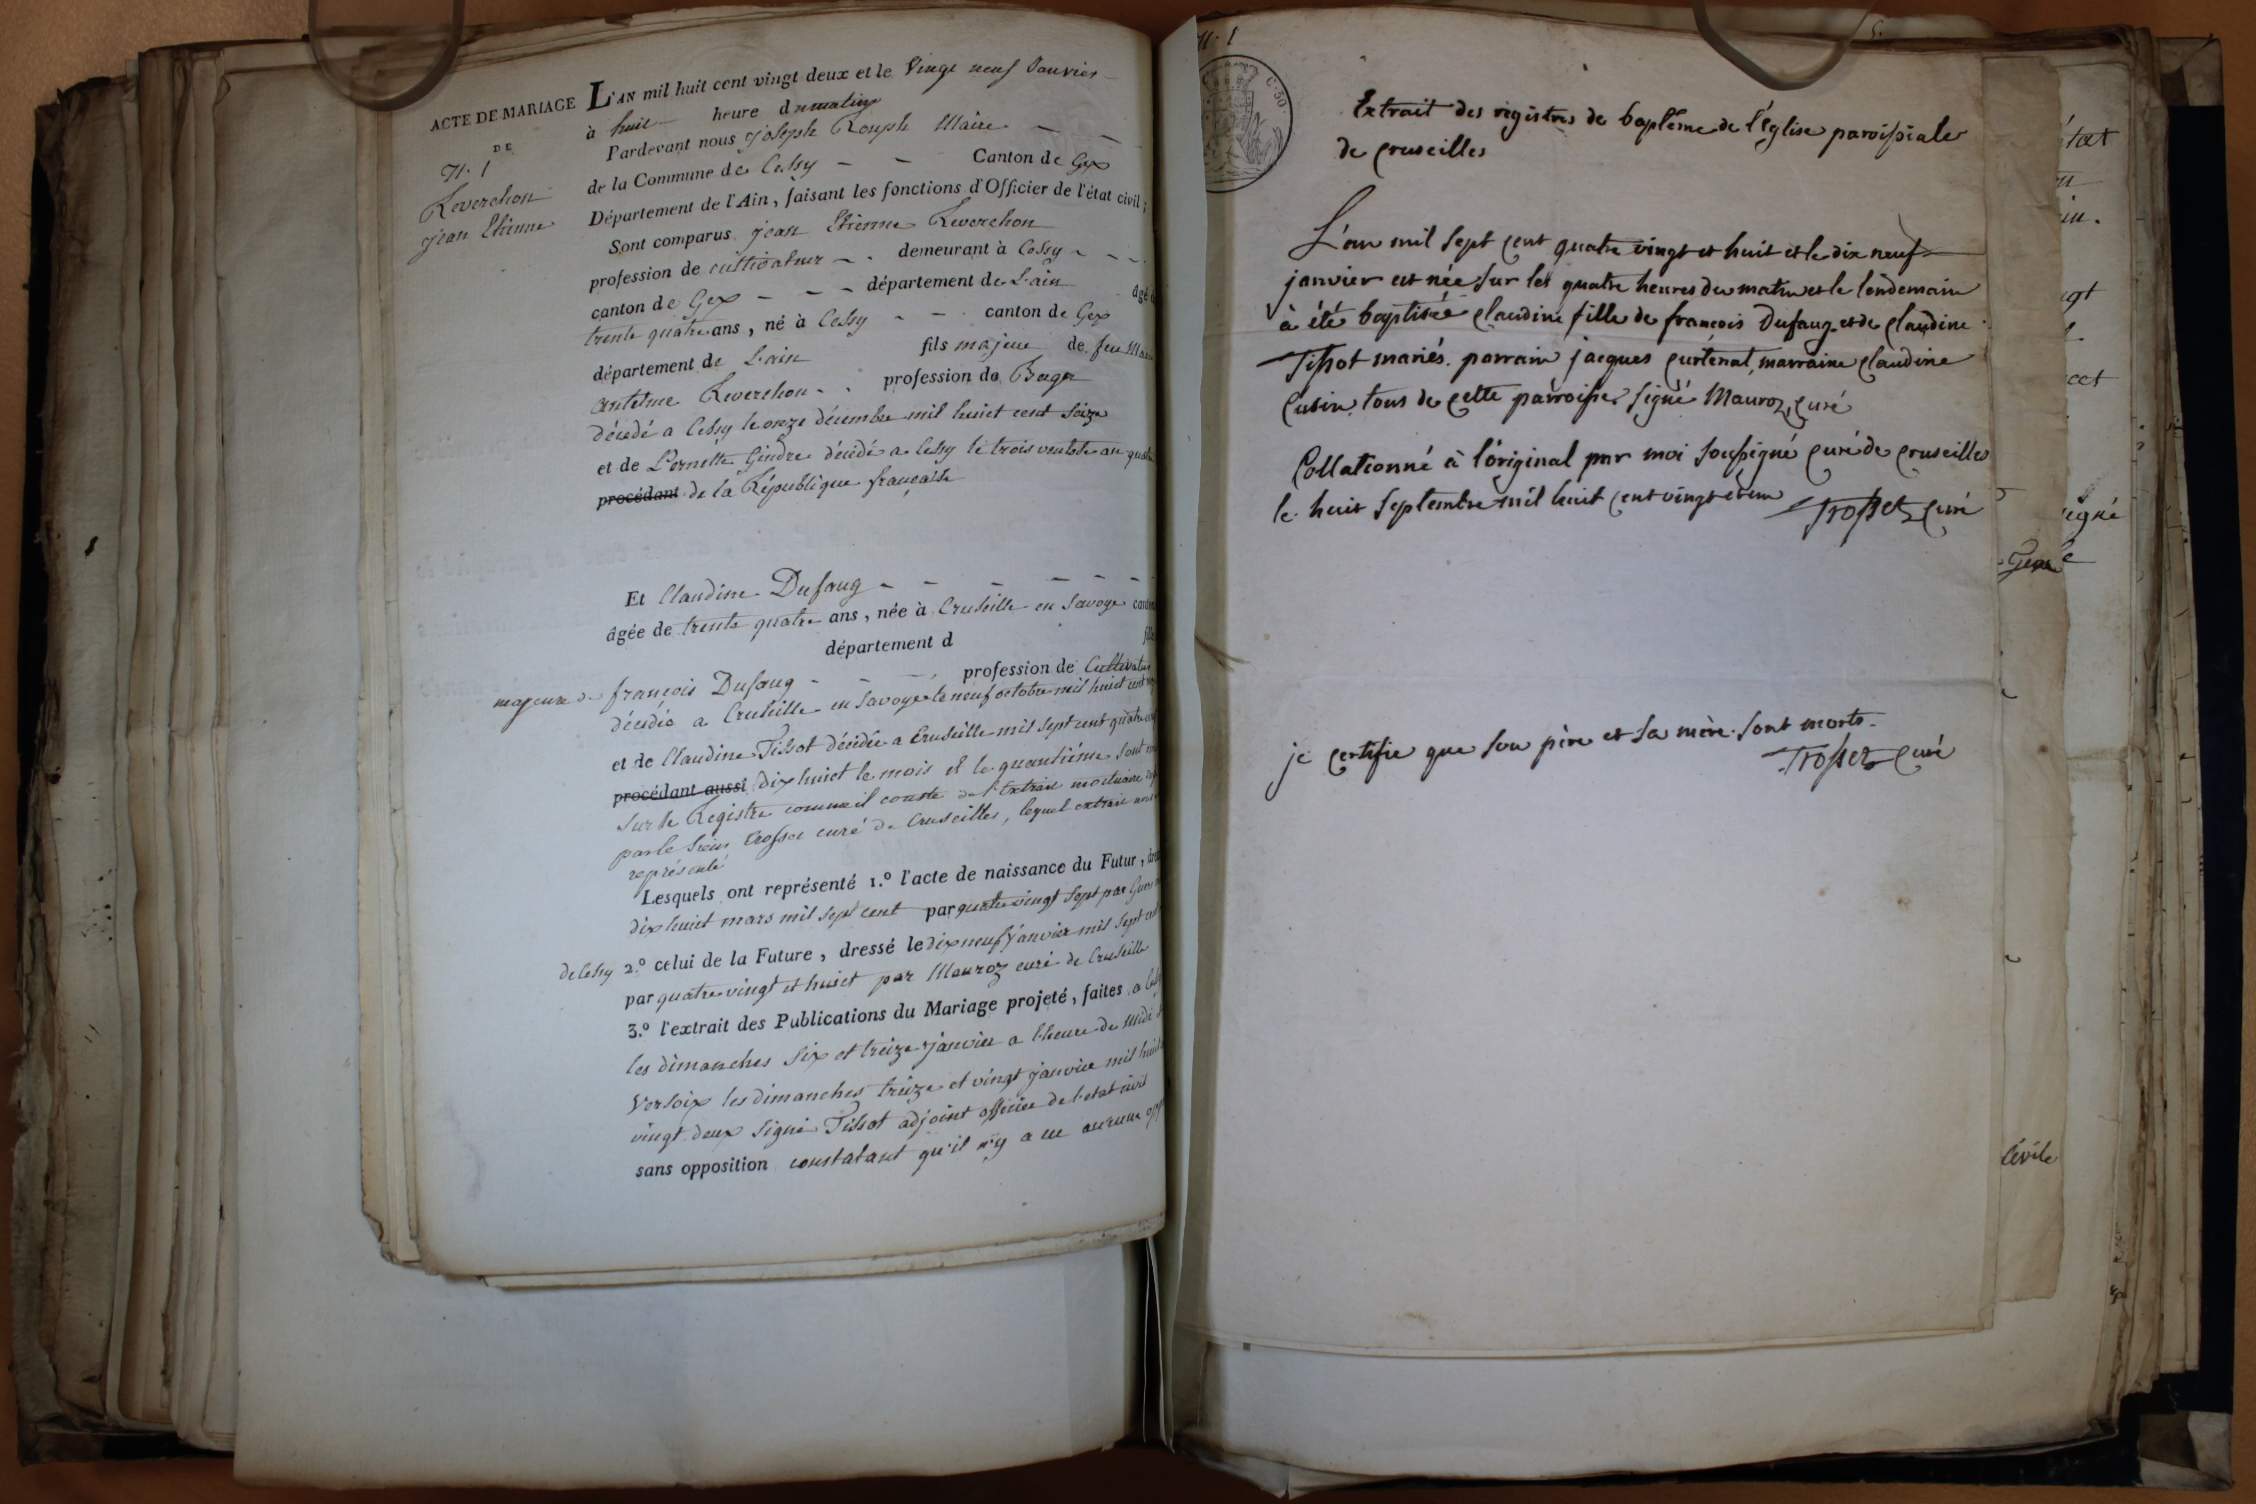 ACTE DE MARIAGE
DE
N. 1
Reverchon
jean Etienne
L'AN mil huit cent vingt deux et le Vingt neuf Janvier
à huit heure du matin
Pardevant nous joseph Rouph Maire
de la Commune de Cessy Canton de Gex
Département de l'Ain, faisant les fonctions d'Officier de l'état civil;
Sont comparus jean Etienne Reverchon
profession de cultivateur demeurant à Cessy
canton de Gex département de L'ain âgé
trente quatre ans, né à Cessy canton de Gex
département de L'ain fils majeur de feu
antelme Reverchon profession de
décédé a Cessy le onze décembre mil huict cent seize
et de Pernette Gindre décédé a Cessy le trois ventose an
procédant de la République française
Et Claudine Dufaug
âgée de trente quatre ans, née à Cruseille en Savoye
département d
majeure de françois Dufaug profession de Cultivateur
décédée a Cruseille en Savoye le neuf octobre mil huict cent
et de Claudine Tissot décédée a Cruseille mil sept cent quatre
procédant aussi dix huict le mois et le quantiéme sont
sur le Registre comme il conste de l'Extrait mortuaire
par le Sieur Trosset curé de Cruseilles, lequel extrait
représenté
Lesquels ont représenté 1.º l'acte de naissance du Futur,
dix huict mars mil sept cent par quatre vingt sept par
de Cessy 2.º celui de la Future, dressé le dix neuf janvier mil sept
par quatre vingt et huict par Mauroz curé de Cruseille
3.º l'extrait des Publications du Mariage projeté, faites a
les dimanches six et treize janvier a l'heure de Midi
Versoix les dimanches treize et vingt janvier mil
vingt deux signé Tissot adjoint officier de l'etat civil
sans opposition constatant qu'il n'y a eu aucune
N. 1
C. 30.
Extrait des régistres de baptême de l'église paroissiale
de cruseilles
L'an mil sept cent quatre vingt et huit et le dix neuf
janvier est née sur les quatre heures du matin et le lendemain
à été baptisée claudine fille de francois Dufaug et de claudine
Tissot mariés. parrain jacques curtenat, marraine claudine
Cusin, tous de cette parroisse signé Mauroz, curé
Collationné à l'original par moi soussigné curé de cruseilles
le huit septembre mil huit cent vingt et un Trosset curé
je certifie que son père et sa mère sont morts.
Trosset curé
Civile